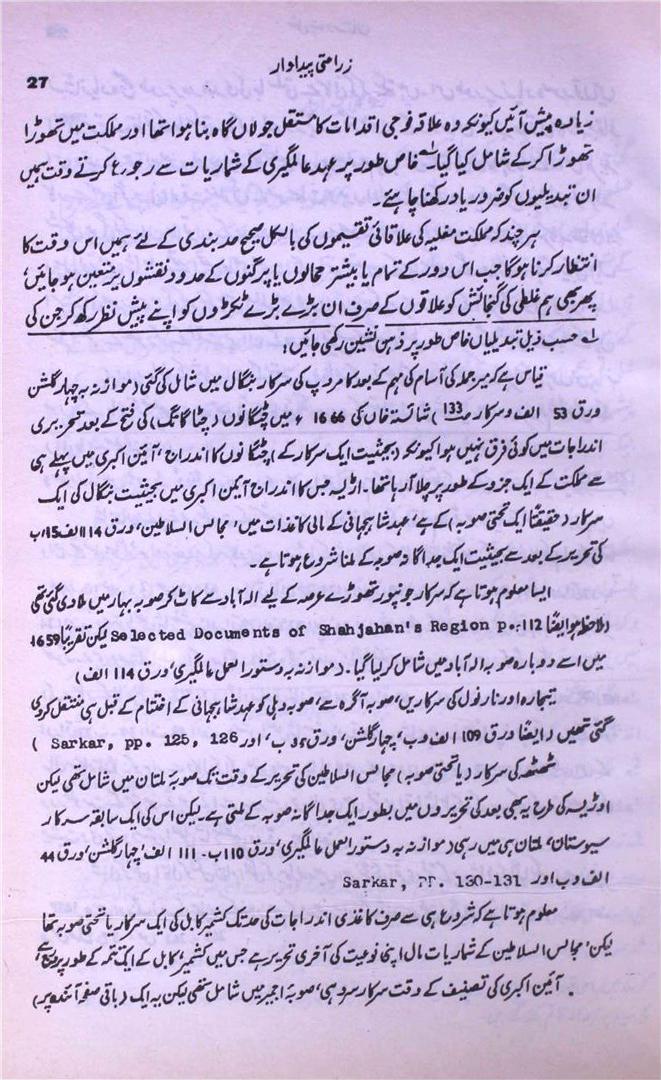 27
زراعتی پیداوار
زیادہ پیش آئیں کیونکہ وہ علاقہ فوجی اقدامات کا مستقل جولاں گاہ بنا ہوا تھا اور مملکت میں تھوڑا
تھوڑا کرکے شامل کیا گیا۔ خاص طور پر عہد عالمگیری کے شماریات سے رجوع کرتے وقت ہمیں
ان تبدیلیوں کو ضرور یاد رکھنا چاہئے۔
ہر چند کہ مملکت مغلیہ کی علاقائی تقسیموں کی بالکل صحیح حد بندی کے لئے ہمیں اس وقت کا
انتظار کرنا ہوگا جب اس دور کے تمام یا بیشتر محالوں یا پرگنوں کے حدود نقشوں پر متعین ہو جائیں،
پھر بھی ہم غلطی کی گنجائش کو علاقوں کے صرف ان بڑے بڑے ٹکڑوں کو اپنے پیش نظر رکھ کر جن کی
لہ حسب ذیل تبدیلیاں خاص طور پر ذہن نشین رکھی جائیں:
قیاس ہے کہ میر جملہ کی آسام کی مہم کے بعد کامروپ کی سرکار بنگال میں شامل کی گئی (موازنہ بہ چہار گلشن
ورق 53 الف و سرکار صـ 133) شائستہ خاں کی 1666ء میں چٹگانوں (چٹاگانگ) کی فتح کے بعد تحریری
اندراجات میں کوئی فرق نہیں ہوا کیونکہ (بحیثیت ایک سرکار کے) چٹگانوں کا اندراج، آئین اکبری میں پہلے ہی
سے مملکت کے ایک جزو کے طور پر چلا آ رہا تھا۔ اڑیسہ جس کا اندراج آئین اکبری میں بحیثیت بنگال کی ایک
سرکار (حقیقتاً ایک تحتی صوبہ) کے ہے، عہد شاہجہانی کے مالی کاغذات میں، مجالس السلاطین، ورق 114 الف، 15ا،ب
کی تحریر کے بعد سے بحیثیت ایک جداگانہ صوبہ کے ملنا شروع ہوتا ہے۔
ایسا معلوم ہوتا ہے کہ سرکار جونپور تھوڑے عرصہ کے لیے الہ آباد سے کاٹ کر صوبہ بہار میں ملا دی گئی تھی
(ملاحظہ ہو ایضاً Selected Documents of Shahjahan's Region p.112 لیکن تقریباً 1659ء
میں اسے دوبارہ صوبہ الہ آباد میں شامل کر لیا گیا۔ (موازنہ بہ دستور العمل عالمگیری، ورق 114 الف)
تیجارہ اور نارنول کی سرکاریں، صوبہ آگرہ سے، صوبہ دہلی کو عہد شاہجہانی کے اختتام کے قبل ہی منتقل کر دی
گئی تھیں (ایضاً ورق 109 الف و ب، چہار گلشن، ورق ب، اور Sarkar, pp. 125, 126)
ٹھٹھہ کی سرکار (یا تحتی صوبہ) مجالس السلاطین کی تحریر کے وقت تک صوبہ ملتان میں شامل تھی لیکن
اوڑیسہ کی طرح یہ بھی بعد کی تحریروں میں بطور ایک جداگانہ صوبہ کے ملتی ہے لیکن اس کی ایک سابقہ سرکار
سیوستان، ملتان ہی میں رہی (موازنہ بہ دستور العمل عالمگیری، ورق 110 ب - 111 الف، چہار گلشن، ورق 44
الف و ب اور Sarkar, pp. 130-131
معلوم ہوتا ہے کہ شروع ہی سے صرف کاغذی اندراجات کی حد تک کشمیر کابل کی ایک سرکار یا تحتی صوبہ تھا
لیکن، مجالس السلاطین کے شماریات مال اپنی نوعیت کی آخری تحریر ہے جس میں کشمیر، کابل کے ایک تتمہ کے طور پر درج ہے
آئین اکبری کی تصنیف کے وقت سرکار سروہی، صوبہ اجمیر میں شامل تھی لیکن یہ ایک (باقی صفحہ آئندہ پر)